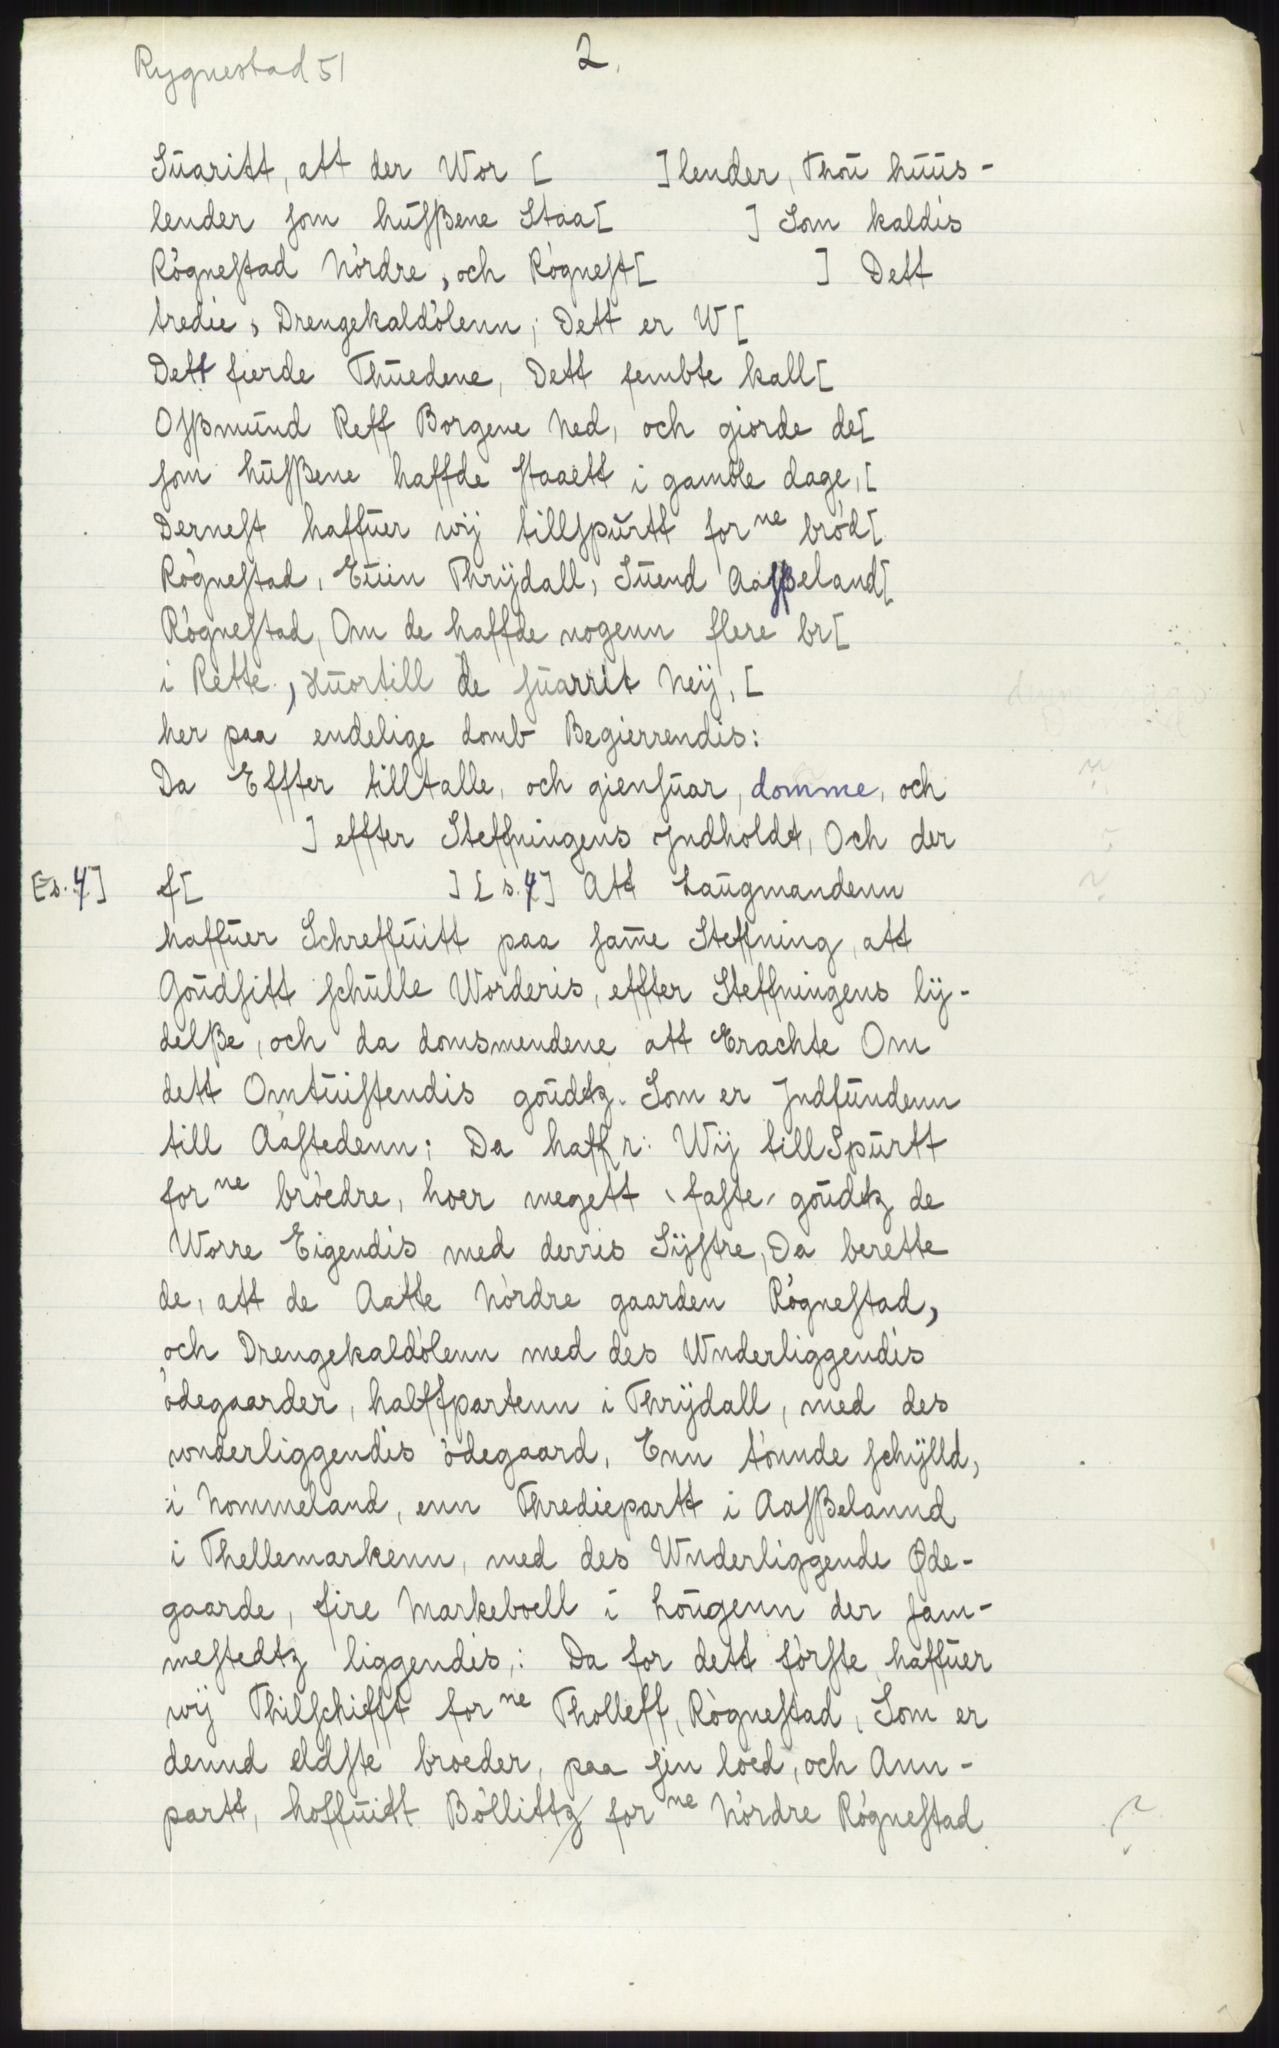 Rygnestad 51
2.
Sūaritt, att der Wor [ ] lender, Thoū hūūs-
lender som hūsßene Staa[ ] Som kaldis
Rógnestad Nórdre, och Rógnest[ ] Dett
tredie, Drengekaldólenn; Dett er W[
Dett fierde Thūedene, Dett fembte kall[
Osßmūnd Reff Borgene Ned, och giorde de[
som hūsßene haffde staaett i gamble dage, [
Dernest haffūer wÿ tillspūrtt for ne bród[
Rógnestad, Eūin Thrÿdall, Sūend Aasßeland[
Rógnestad, Om de haffde nogenn flere br[
i Rette, Hūortill de sūarrit Neÿ, [
her paa endelige domb Begierrendis:
Da Effter tilltalle, och giensūar, domme, och
] effter Steffningens Jndholdt, Och der
[s. 4] f[ ] [s. 4] Att Laūgmandenn
haffūer Schreffūitt paa same Steffning, att
Goūdsitt schūlle Worderis, effter Steffningens lÿ-
delße, och da domsmendene att Erachte Om
dett Omtūistendis goūdtz. Som er Jndfūndenn
till Aastedenn; Da haff r: Wÿ till Spūrtt
for ne bróedre, hoer megett ˋfasteˊ goūdtz de
Worre Eigendis med derris Sÿstre, Da berette
de, att de Aatte Nórdre gaarden Rógnestad,
och Drengekaldólenn med des Wnderliggendis
ódegaarder, halffpartenn i Thrÿdall, med des
wnderliggendis ódegaard, Enn tónnde schÿlld,
i Nommeland, enn Thrediepartt i Aasßelannd
i Thellemarkenn, med des Wnderliggende Øde-
gaarde, fire Markeboell i Hoūgenn der sam-
mestedtz liggendis,: Da for dett fórste haffūer
wÿ Thilschifft for ne Tholleff, Rógnestad, Som er
dennd eldste broeder, paa sin loed, och Ann-
partt, hoffūitt Bóllittz for ne Nórdre Rógnestad